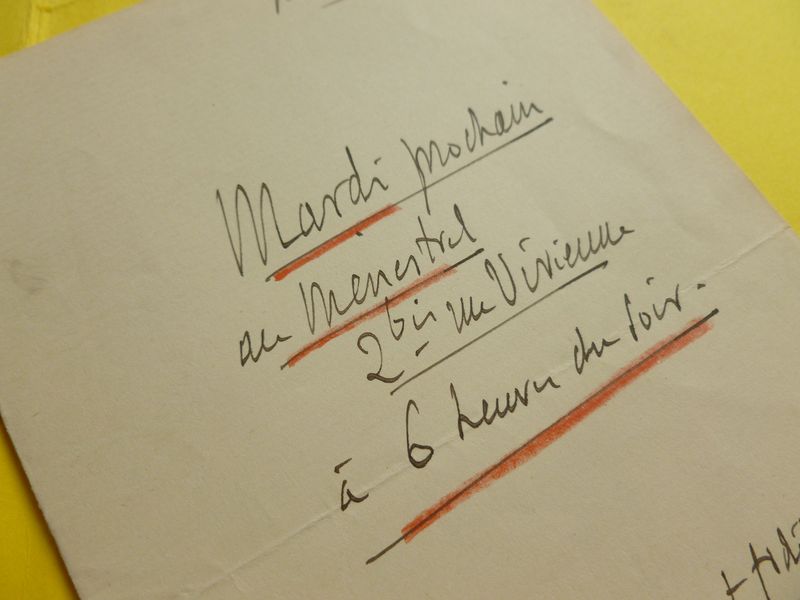 Mardi prochain
au Ménestrel
2 bis rue Vivienne
à 6 heures du soir.